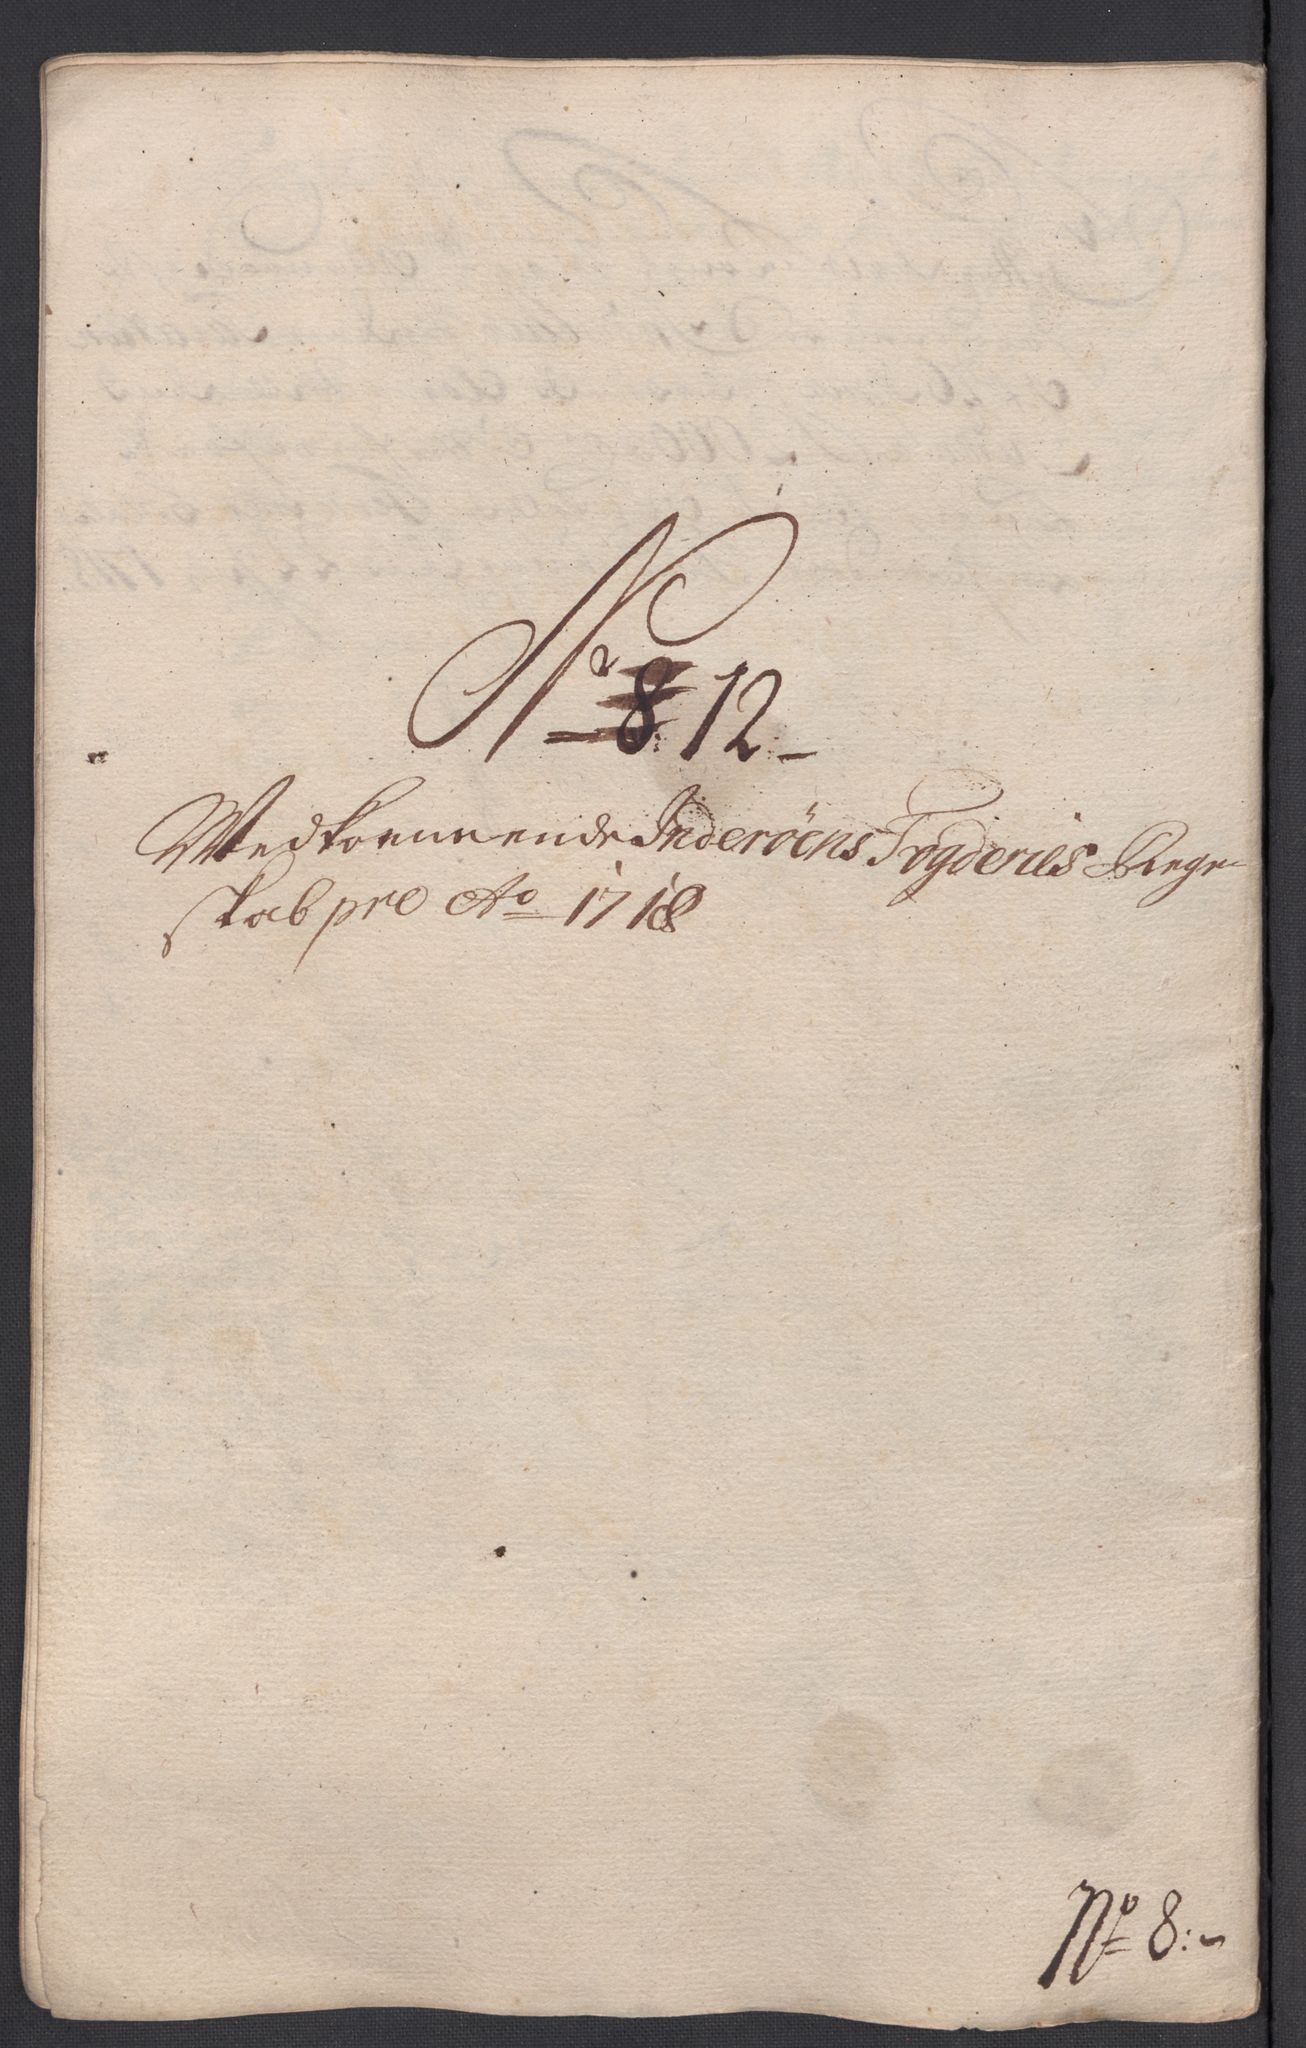 Nr 8 12
Vedkommende Inderöens Fogderies Rege-
skab pro Ao 1718
No 8: